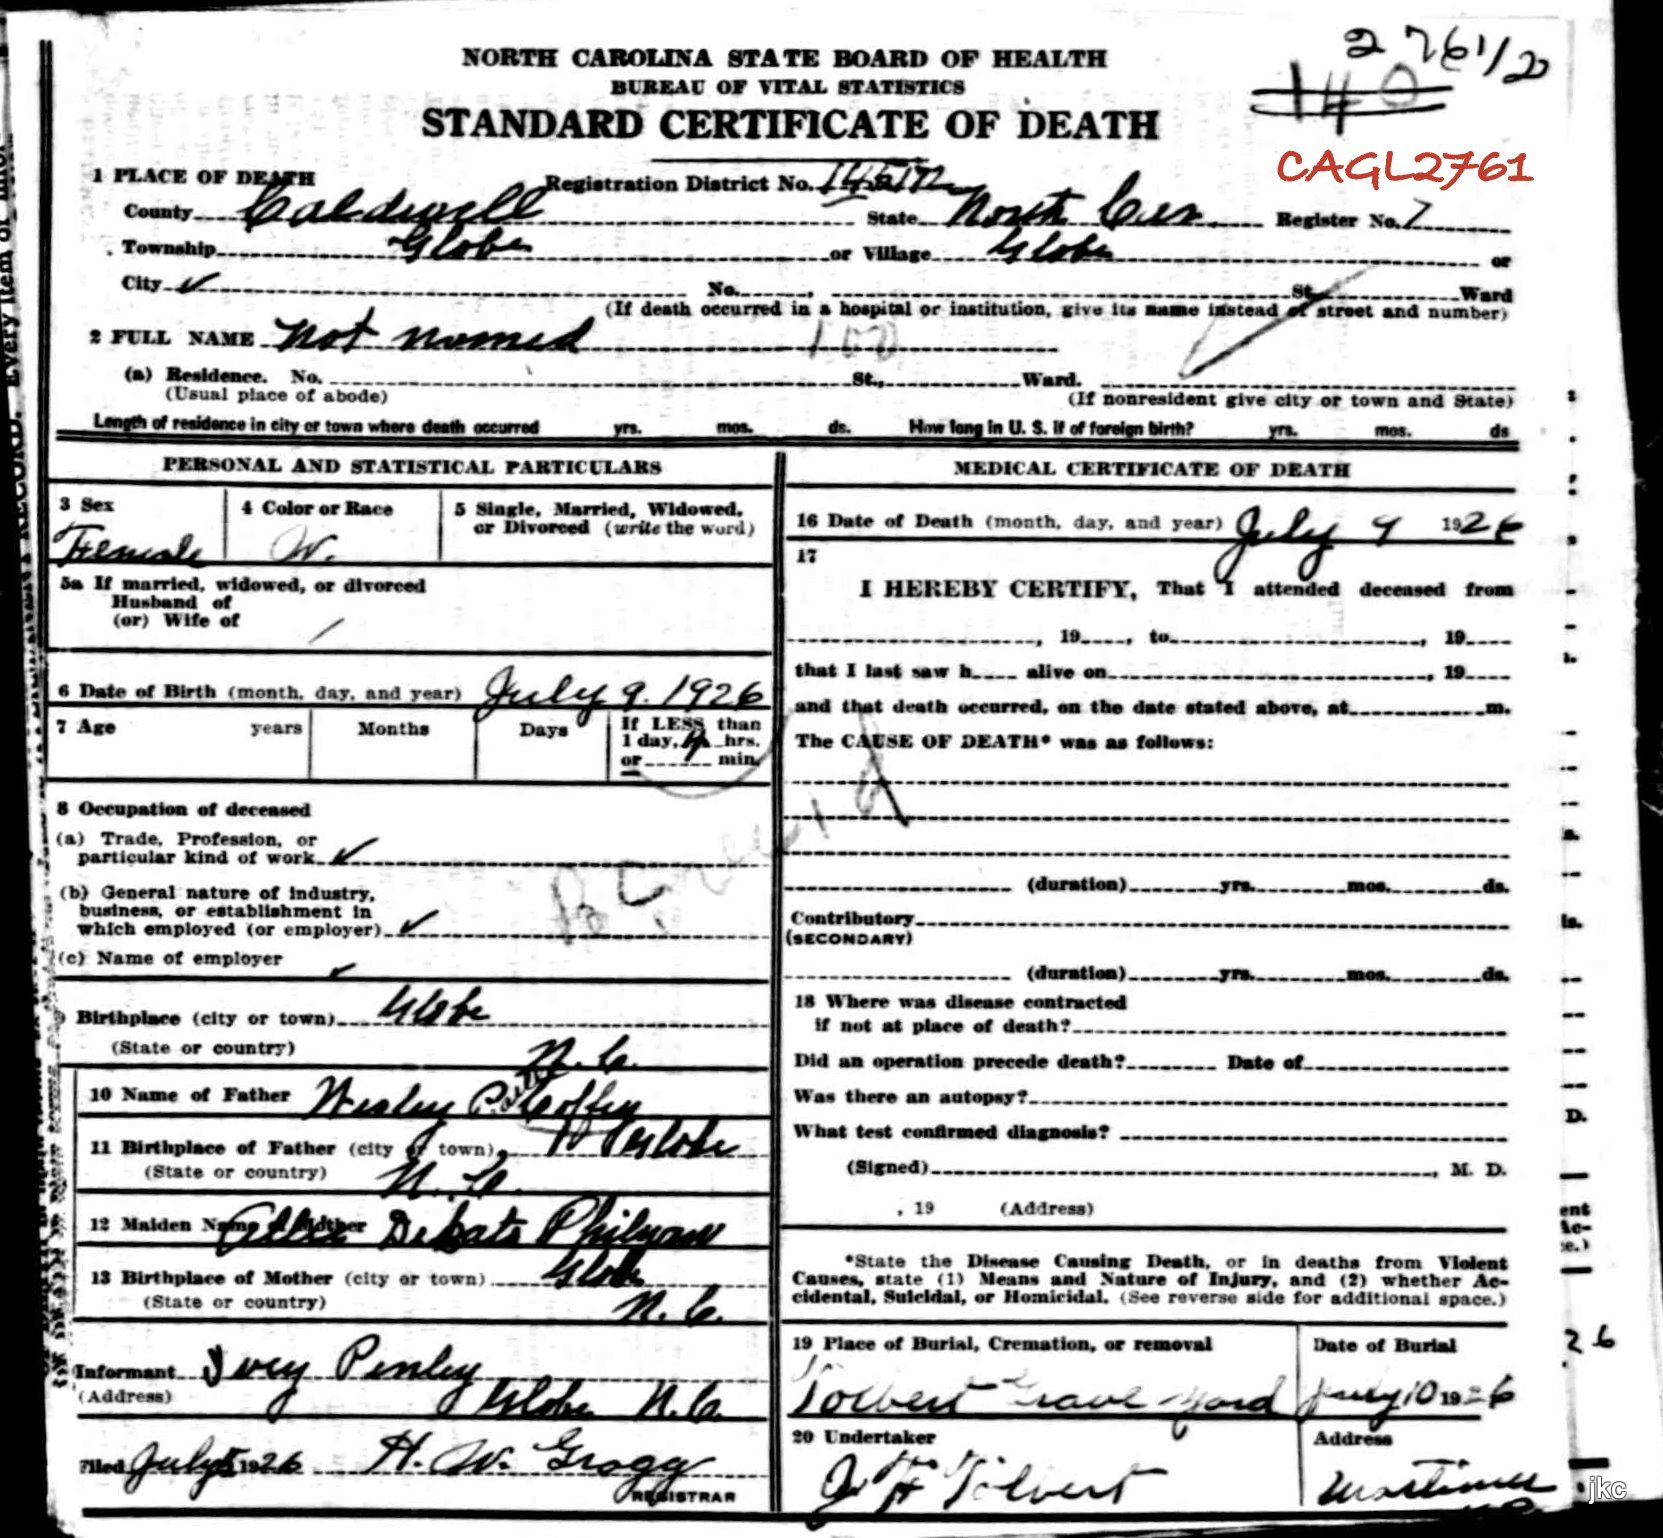 2 761/20
140
NORTH CAROLINA STATE BOARD OF HEALTH
BUREAU OF VITAL STATISTICS
STANDARD CERTIFICATE OF DEATH
CAGL2761
1 PLACE OF DEATH Registration District No.
County Caldwell State North Car. Register No. 7
Township Globe or Village Globe or
City ✓ No. , St. Ward
(If death occurred in a hospital or institution, give its name instead of street and number)
2 FULL NAME Not Named 100
(a) Residence. No. St., Ward.
(Usual place of abode) (If nonresident give city or town and State)
Length of residence in city or town where death occurred yrs. mos. ds. How long in U. S. if of foreign birth? yrs. mos. ds
PERSONAL AND STATISTICAL PARTICULARS
3 Sex 4 Color or Race 5 Single, Married, Widowed,
or Divorced (write the word)
Female W.
5a If married, widowed, or divorced
Husband of
(or) Wife of
6 Date of Birth (month, day, and year) July 9. 1926
7 Age years Months Days If LESS than
1 day, 4 hrs.
or min.
8 Occupation of deceased
(a) Trade, Profession, or
particular kind of work ✓
(b) General nature of industry,
business, or establishment in
which employed (or employer) ✓
(c) Name of employer ✓
9 Birthplace (city or town) Globe
(State or country) N. C.
10 Name of Father Wesley Coffey
11 Birthplace of Father (city or town) Globe
(State or country) N. C.
12 Maiden Name of Mother
13 Birthplace of Mother (city or town) Globe
(State or country) N. C.
Informant Ivey Penley
(Address) Globe N. C.
Filed July 1926 H. W. Gragg
REGISTRAR
MEDICAL CERTIFICATE OF DEATH
16 Date of Death (month, day, and year) July 9 1926
17
I HEREBY CERTIFY, That I attended deceased from
, 19 , to , 19
that I last saw h alive on , 19
and that death occurred, on the date stated above, at m.
The CAUSE OF DEATH* was as follows:
(duration) yrs. mos. ds.
Contributory
(SECONDARY)
(duration) yrs. mos. ds.
18 Where was disease contracted
if not at place of death?
Did an operation precede death? Date of
Was there an autopsy?
What test confirmed diagnosis?
(Signed) , M. D.
, 19 (Address)
*State the Disease Causing Death, or in deaths from Violent
Causes, state (1) Means and Nature of Injury, and (2) whether Ac-
cidental, Suicidal, or Homicidal. (See reverse side for additional space.)
19 Place of Burial, Cremation, or removal Date of Burial
Tolbert Grave Yard July 10 1926
20 Undertaker Address
J. H. Tolbert Mortimer
jkc